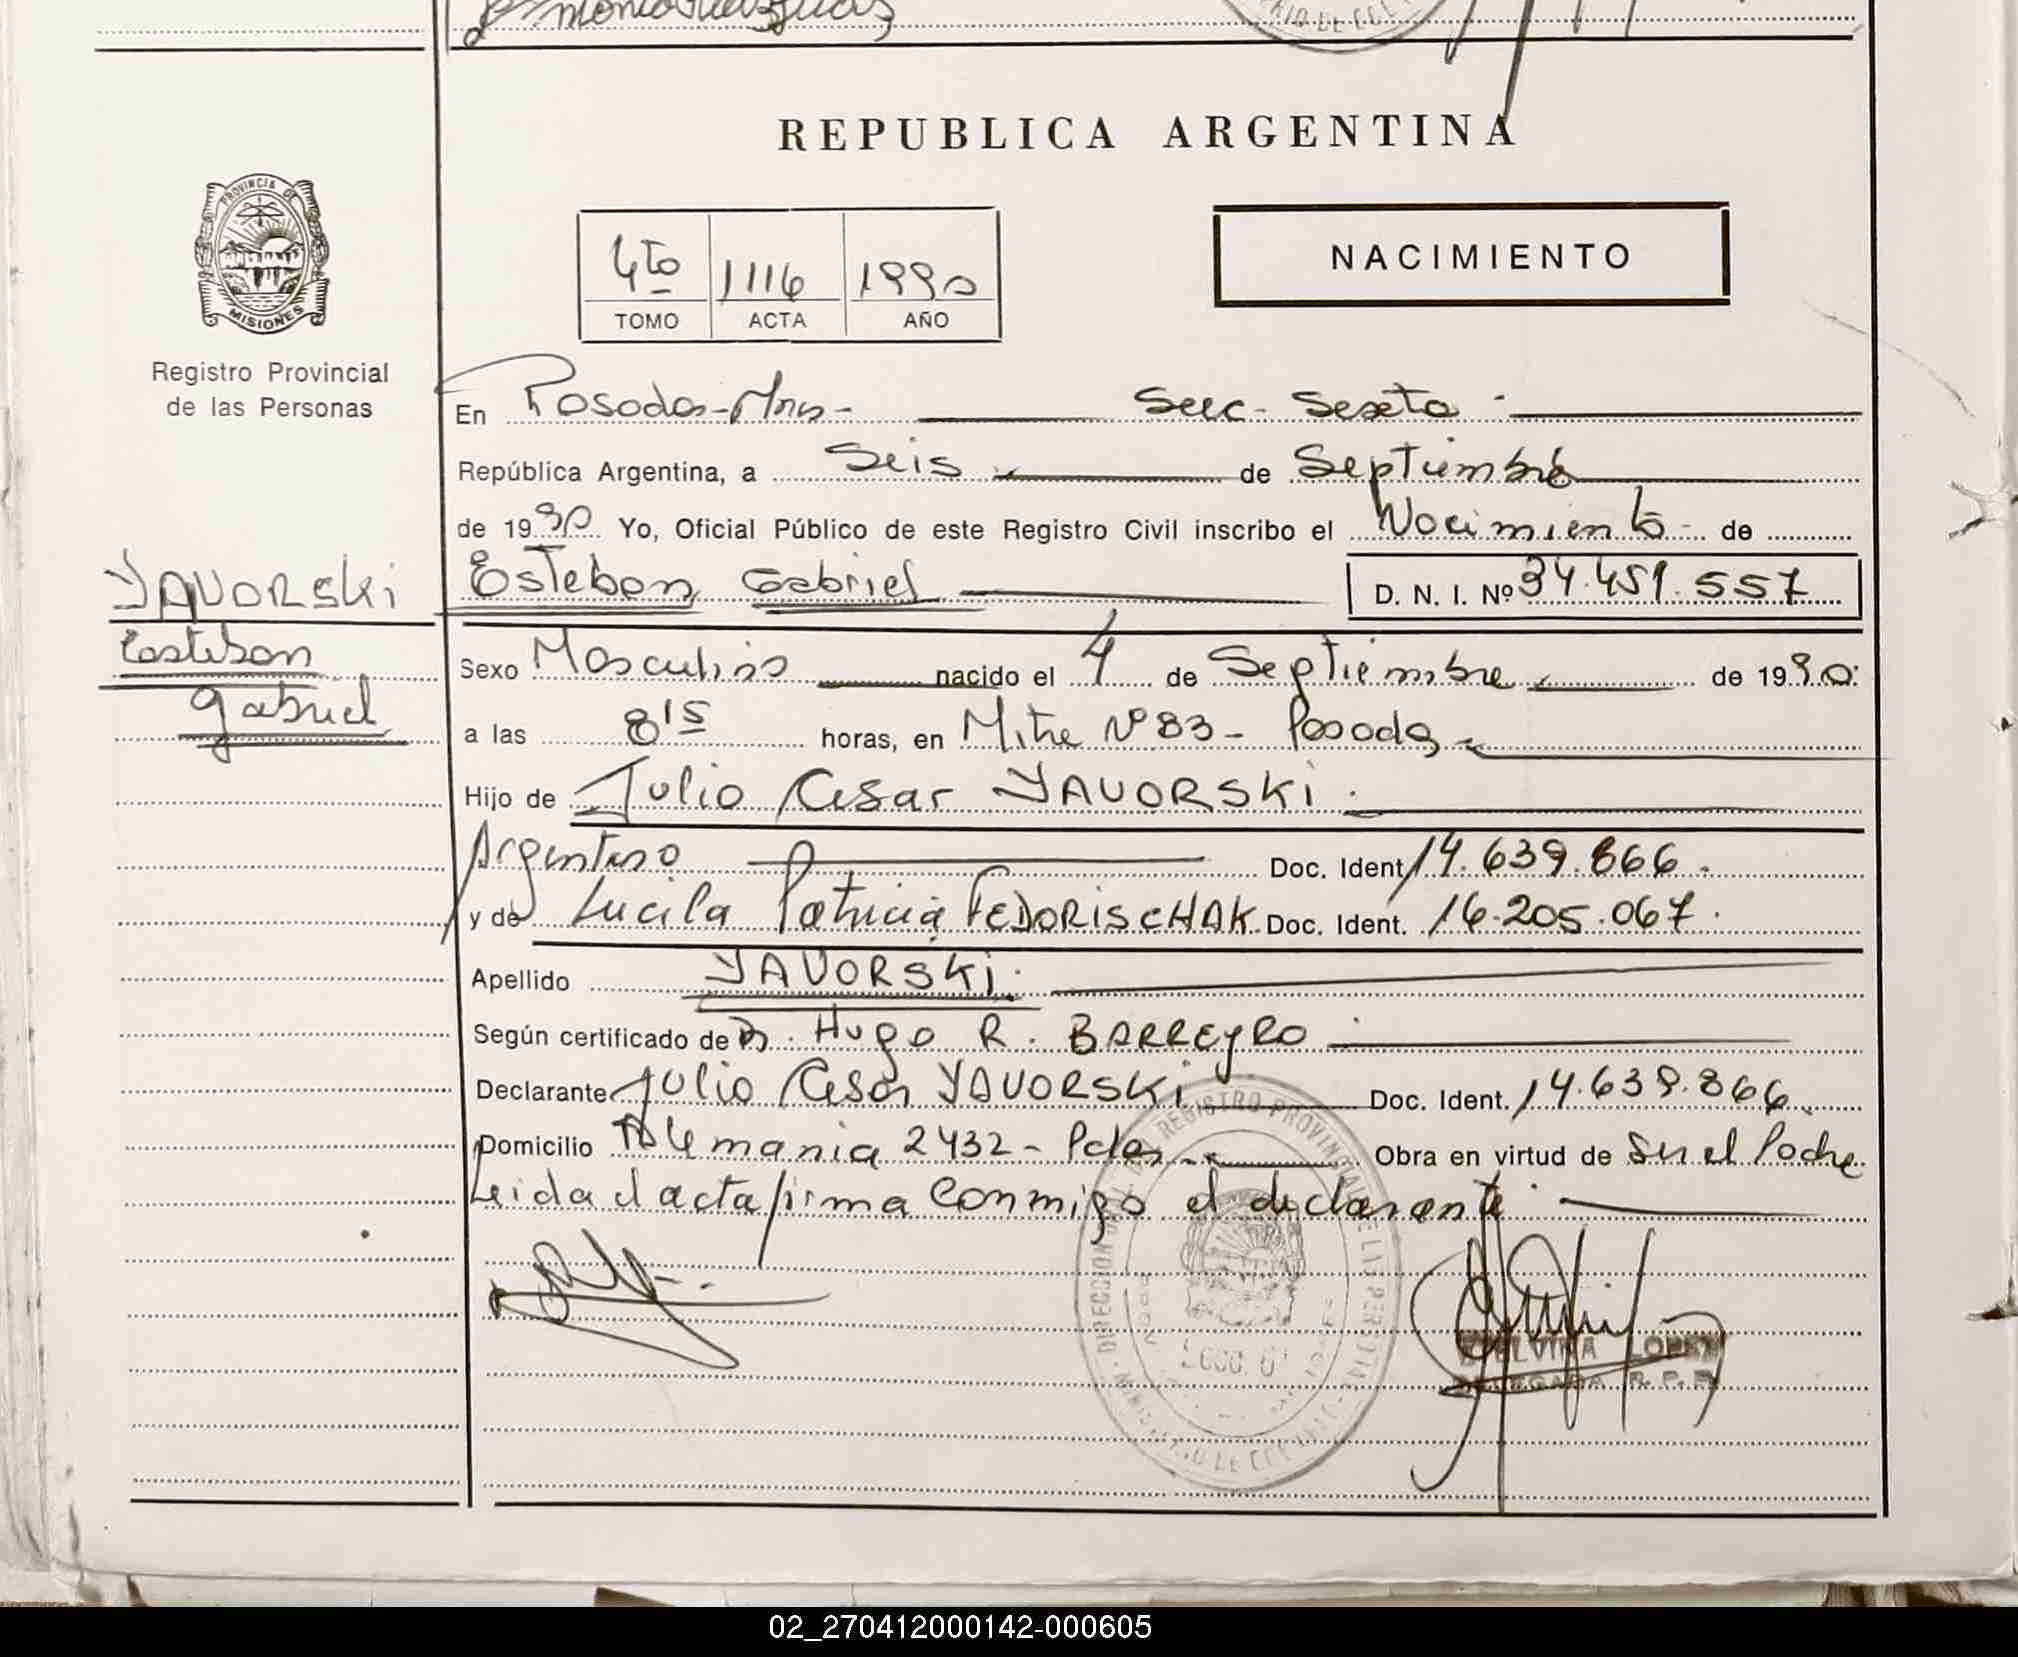 REPUBLICA ARGENTINA
PROVINCIA DE
MISIONES
Registro Provincial
de las Personas
4to 1116 1990
TOMO ACTA AÑO
NACIMIENTO
En Posadas-Mnes- Secc. Sexta
República Argentina, a Seis de Septiembre
de 1990 Yo, Oficial Público de este Registro Civil inscribo el Nacimiento de
YAVORSKi
Esteban
Gabriel
Esteban Gabriel D. N. I. Nº 34.451.557
Sexo Masculino nacido el 4 de Septiembre de 1990.
a las 8 15 horas, en Mitre Nº 83 - Posadas
Hijo de Julio Cesar YAVORSKi.
Argentino Doc. Ident. 14.639.866.
y de Lucila Patricia FEDORISCHAK Doc. Ident. 16.205.067.
Apellido YAVORSKi.
Según certificado de Dr. Hugo R. BARREyRO
Declarante Julio Cesar YAVORSKi Doc. Ident. 14.639.866.
Domicilio Alemania 2432 - Pdas. Obra en virtud de Ser el Padre
Leida el acta firma Conmigo el declarante
LOPEZ
DELEGADA R. P. P.
02_270412000142-000605